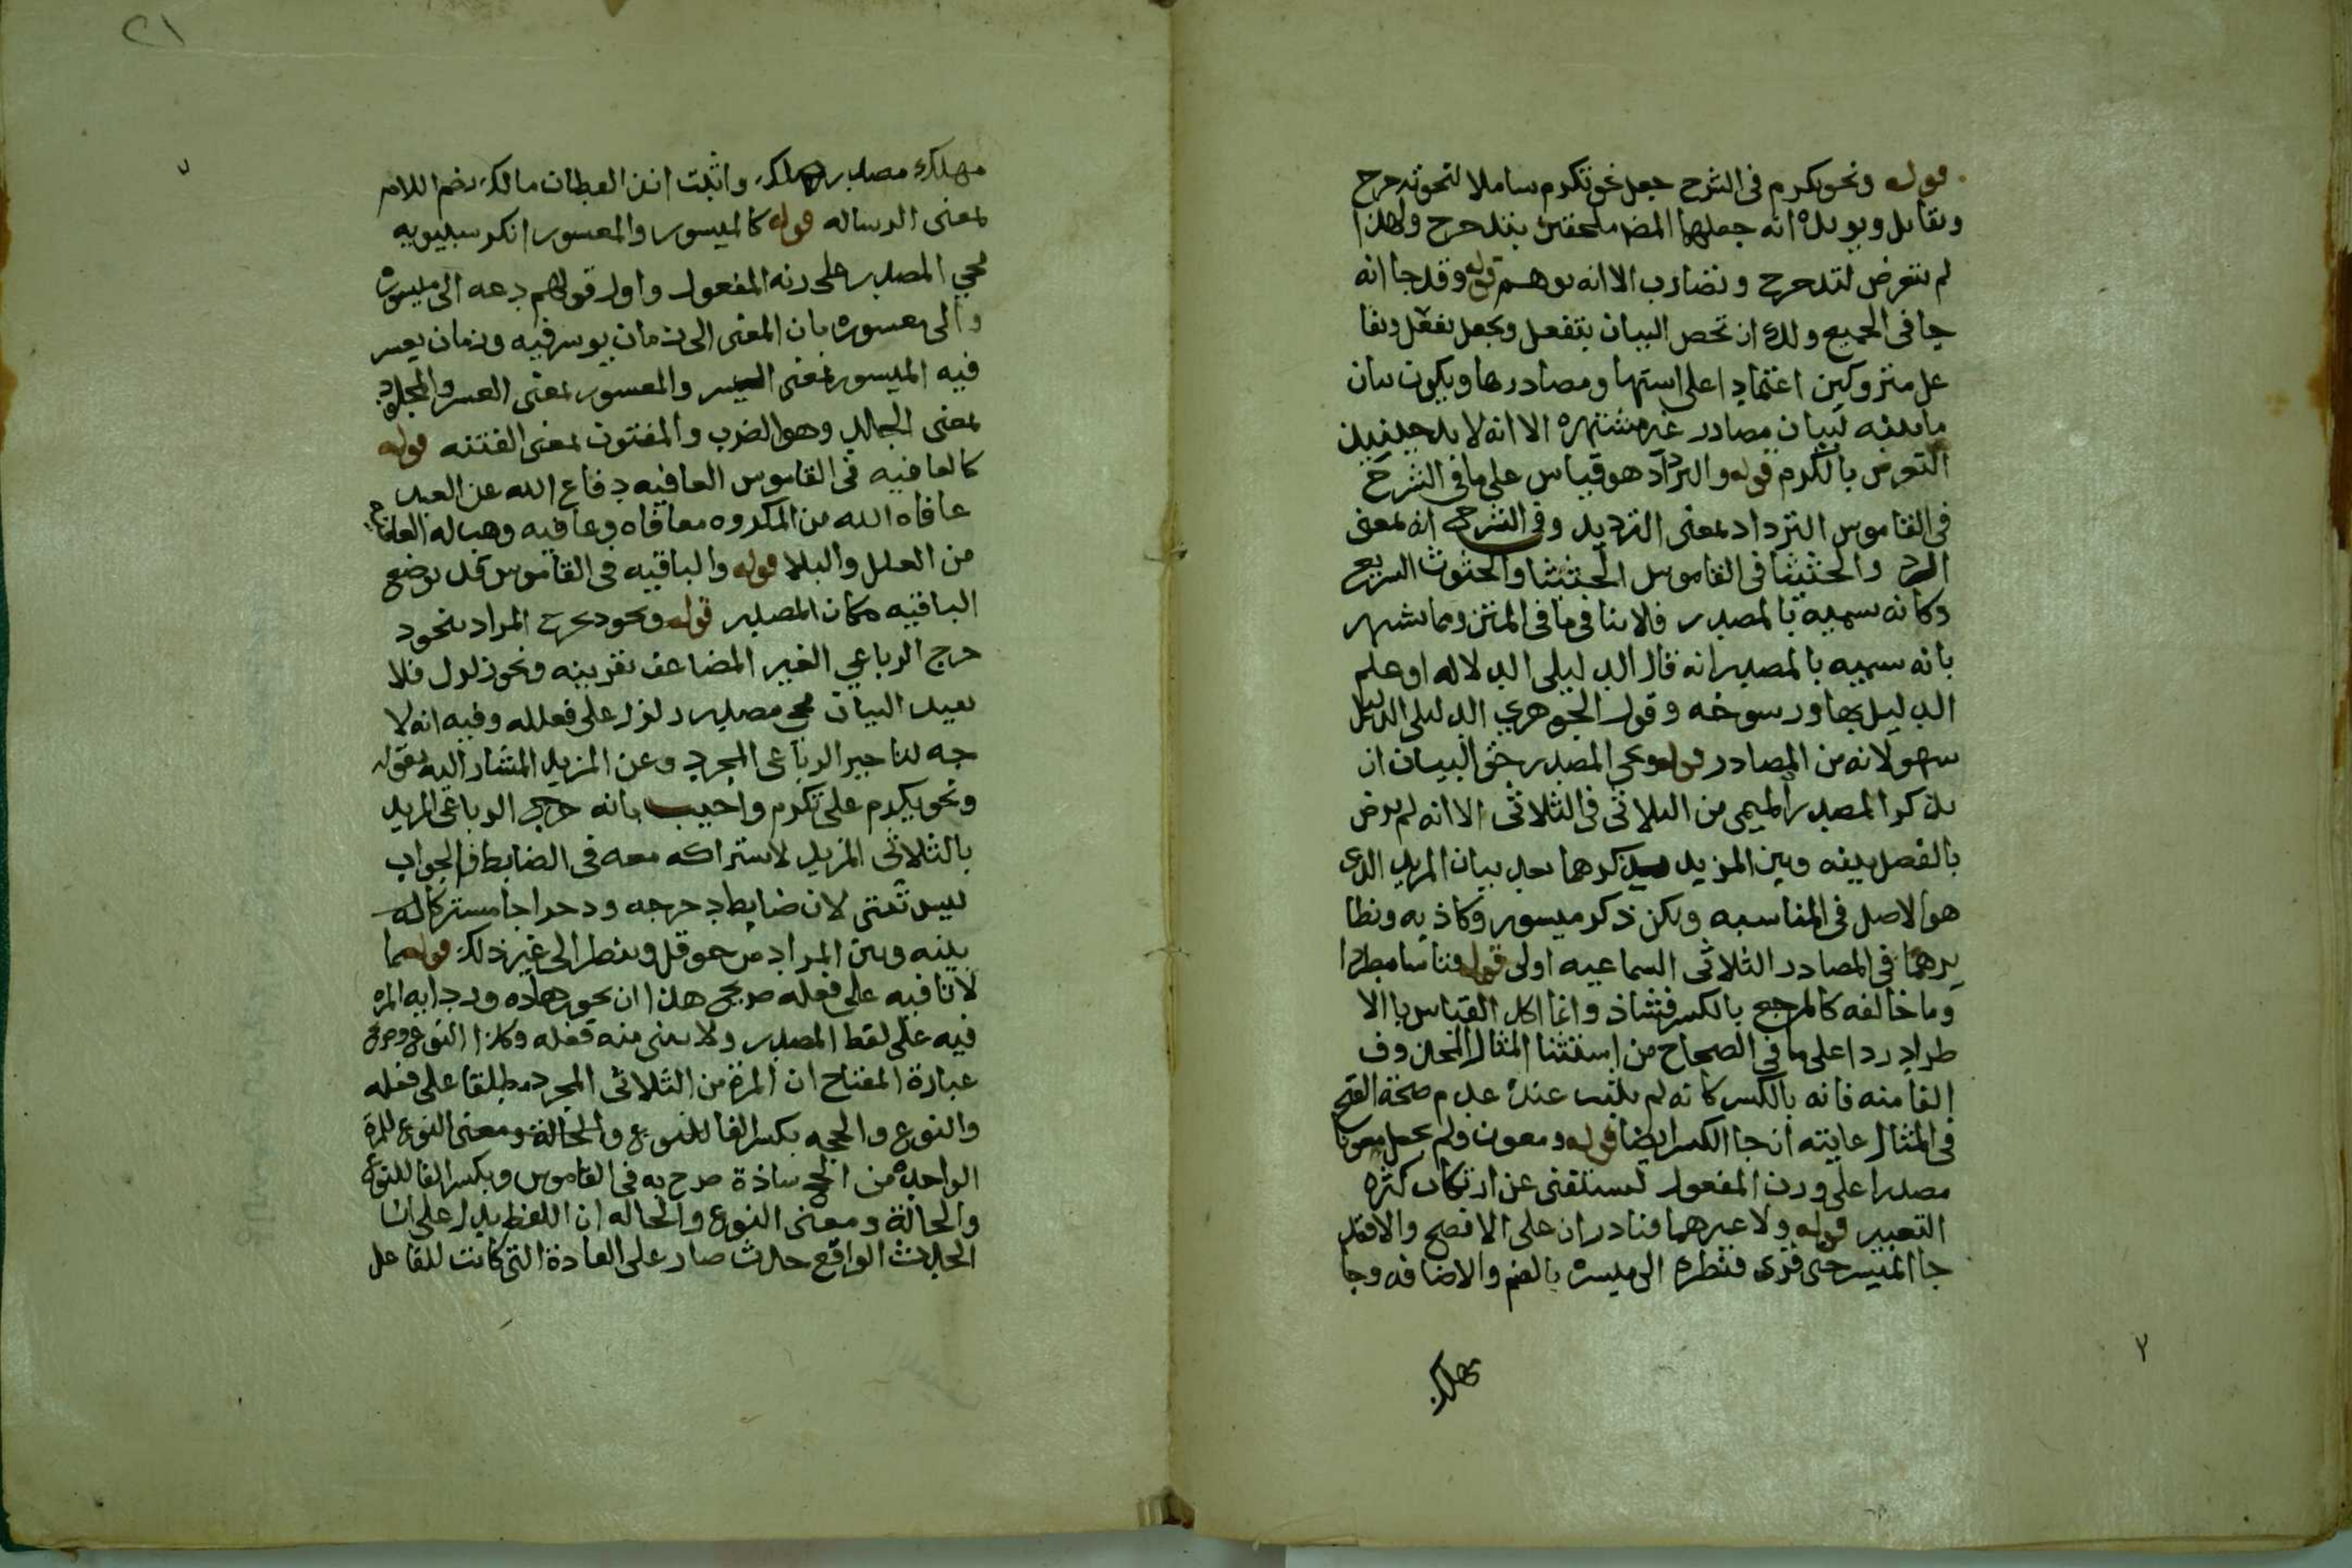 قوله ونحو تكرم في الشرح جعل نحو تكرم شاملا لنحو تدحرج
وتقابل ويويده انه جعلها المصـ ملحقين بتدحرج ولهذا
لم يتعرض لتدحرج وتضارب الا انه يوهم قوله وقد جا انه
جا في الجميع ولك ان تخص البيان بتفعل وتجعل تفعلل وتفا
عل متروكين اعتمادا على استها ومصادرها ويكون بيان
ما بينه لبيان مصادر غير مشتهره الا انه لا بد حينيذ
التعرض بالكرم قوله والترداد هو قياس على ما في الشرح
في القاموس الترداد بمعنى الترديد وفي الشرح انه بمعنى
الرد والحثيثا في القاموس الحثيثا والحثوث السريع
وكانه سميه بالمصدر فلا ينافي ما في المتن ومما يشهر
بانه سميه بالمصدر انه قال الدليلى الدلاله او علم
الدليل بها ورسوخه وقول الجوهري الدليلى الدليل
سهو لانه من المصادر قوله ويجي المصدر حق البيان ان
يذكر المصدر الميمي من الثلاثي في الثلاثي الا انه لم يرض
بالفصل بينه وبين المزيد بذكرها بعد بيان المزيد الذى
هو الاصل في المناسبه ويكن ذكر ميسور وكاذبه ونظا
يرهما في المصادر الثلاثي السماعيه اولى قوله قياسا مطردا
وما خالفه كالمرجع بالكسر فشاذ وانما اكل القياس بالا
طراد ردا على ما في الصحاح من استثنا المثال المحذوف
الفا منه فانه بالكسر كانه لم يثبت عنده عدم صحة الفتح
في المثال غايته ان جا الكسر ايضا قوله ومعون ولم يجعل معونا
مصدرا على وزن المفعول ليستغنى عن ارتكاب كثره
التعبير قوله ولا غيرهما فنادران على الافصح والافقد
جا الميسر حتى قرى فنظرة الى ميسره بالضم والاضافه وجا
مهلك
مهلك مصدر هلك واثبت ابن القطان مالك بضم اللام
بمعنى الرساله قوله كالميسور والمعسور انكر سيبويه
مجي المصدر على زنه المفعول واول قولهم دعه الى ميسوره
والى معسوره بان المعنى الى زمان يوسر فيه وزمان يعسر
فيه الميسور بمعنى اليسر والمعسور بمعنى العسر والمجلود
بمعنى الجالد وهو الضرب والمفتون بمعنى الفتنه قوله
كالعافيه في القاموس العافيه دفاع الله عن العبد
عافاه الله من المكروه معافاه وعافيه وهب له العافيه
من العلل والبلا قوله والباقيه في القاموس قد توضع
الباقيه مكان المصدر قوله ونحو دحرج المراد بنحو د
حرج الرباعي الغير المضاعف بقرينه ونحو زلزل فلا
يفيد البيان مجي مصدر زلزل على فعلله وفيه انه لا
جه لتاخير الرباعي المجرد وعن المزيد المشار اليه بقوله
ونحو يكرم على تكرم واجيب بانه حرج الرباعي المزيد
بالثلاثي المزيد لاشتراكه معه في الضابط فالجواب
ليس بشى لان ضابط دحرجه ودحراجا مشتركا له
بينه وبين المراد من حوقل وبيطر الى غير ذلك قوله مما
لا تا فيه على فعله صريح هذا ان نحو هداه ودرايه المره
فيه على لفظ المصدر ولا يبنى منه فعله وكذا النوع وصريح
عبارة المفتاح ان المرة من الثلاثي المجرد مطلقا على فعله
والنوع والحجه بكسر الفا للنوع والحالة ومعنى النوع للمرة
الواحده من الحج شاذة صرح به في القاموس وبكسر الفا للنوع
والحالة ومعنى النوع والحاله ان اللفظ يدل على ان
الحدث الواقع حدث صار على العادة التي كانت للفاعل